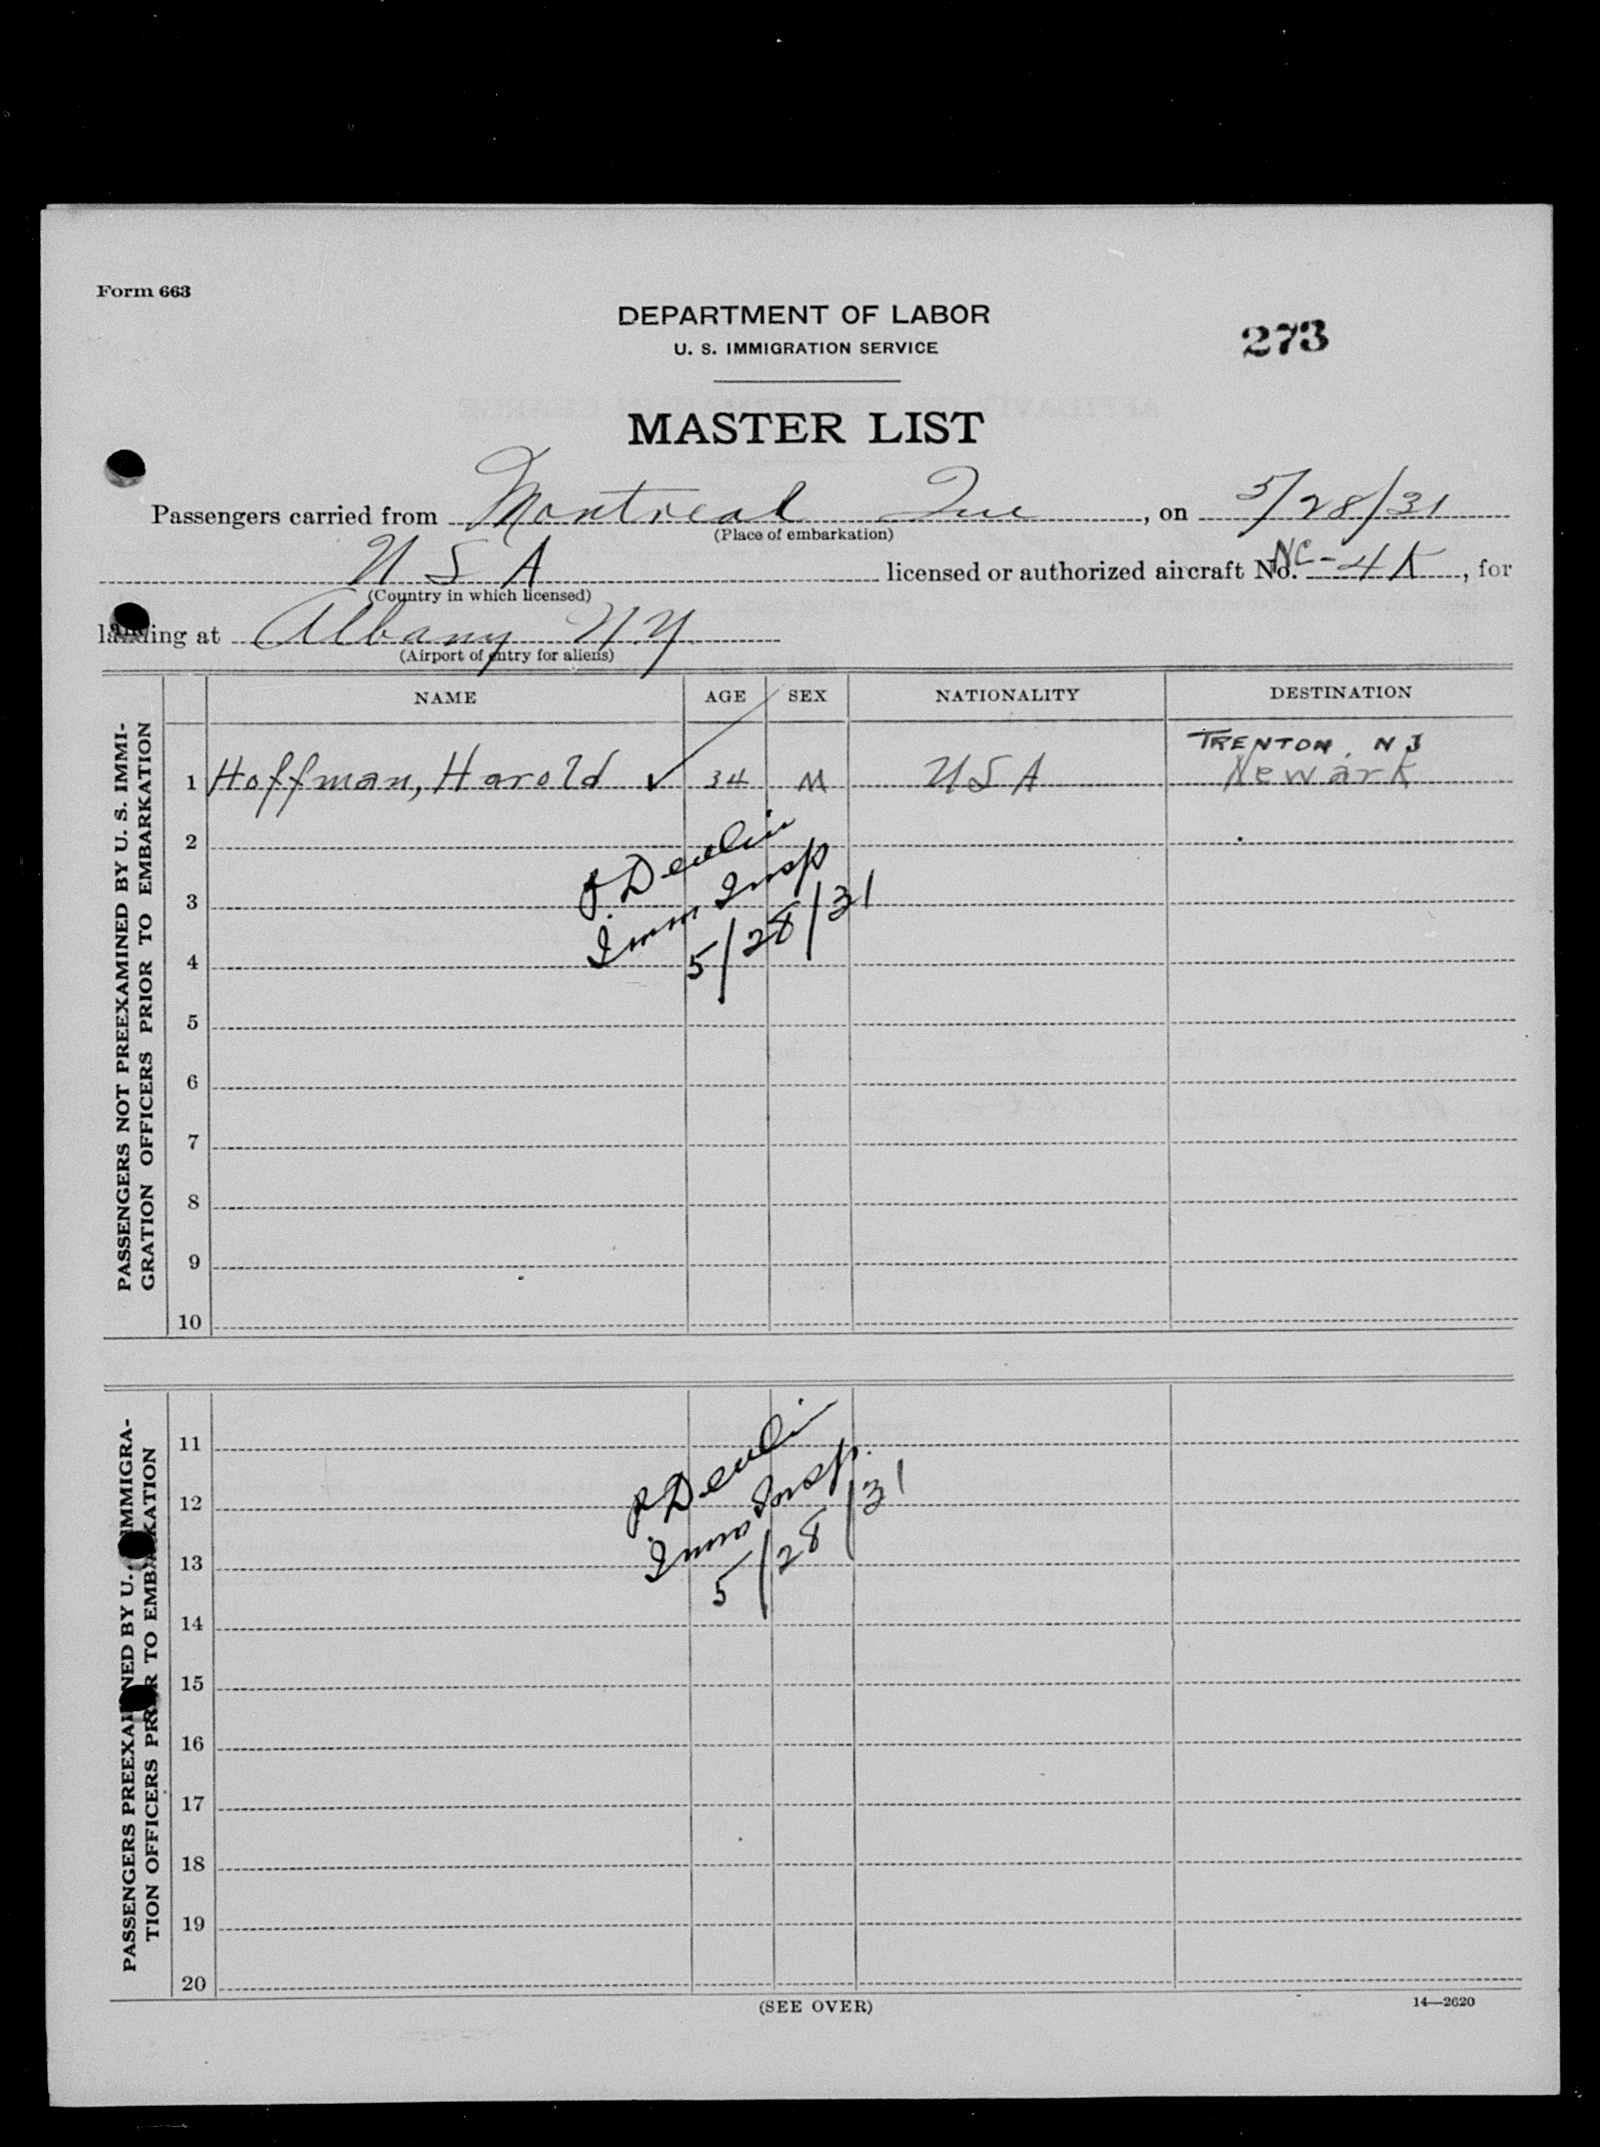 Form 663
DEPARTMENT OF LABOR
U. S. IMMIGRATION SERVICE
273
MASTER LIST
Passengers carried from Montreal Que, on 5/28/31
(Place of embarkation)
USA licensed or authorized aircraft No. NC-4K, for
(Country in which licensed)
landing at Albany N.Y.
(Airport of entry for aliens)
NAME AGE SEX NATIONALITY DESTINATION
PASSENGERS NOT PREEXAMINED BY U. S. IMMI-
GRATION OFFICERS PRIOR TO EMBARKATION
TRENTON, N J
1 Hoffman, Harold ✓ 34 M USA Newark
2
3
4
5
6
7
8
9
10
P. Devlin
Imm Insp
5/28/31
PASSENGERS PREEXAMINED BY U. S. IMMIGRA-
TION OFFICERS PRIOR TO EMBARKATION
11
12
13
14
15
16
17
18
19
20
P. Devlin
Imm Insp.
5/28/31
(SEE OVER)
14—2620